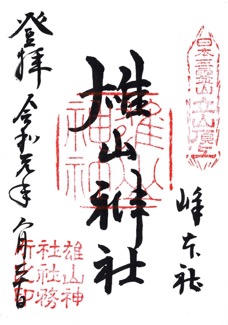 日本三霊山立山頂上
峰本社
雄山神社
雄山神社
登拝 令和元年
雄山神
社社務
所之印